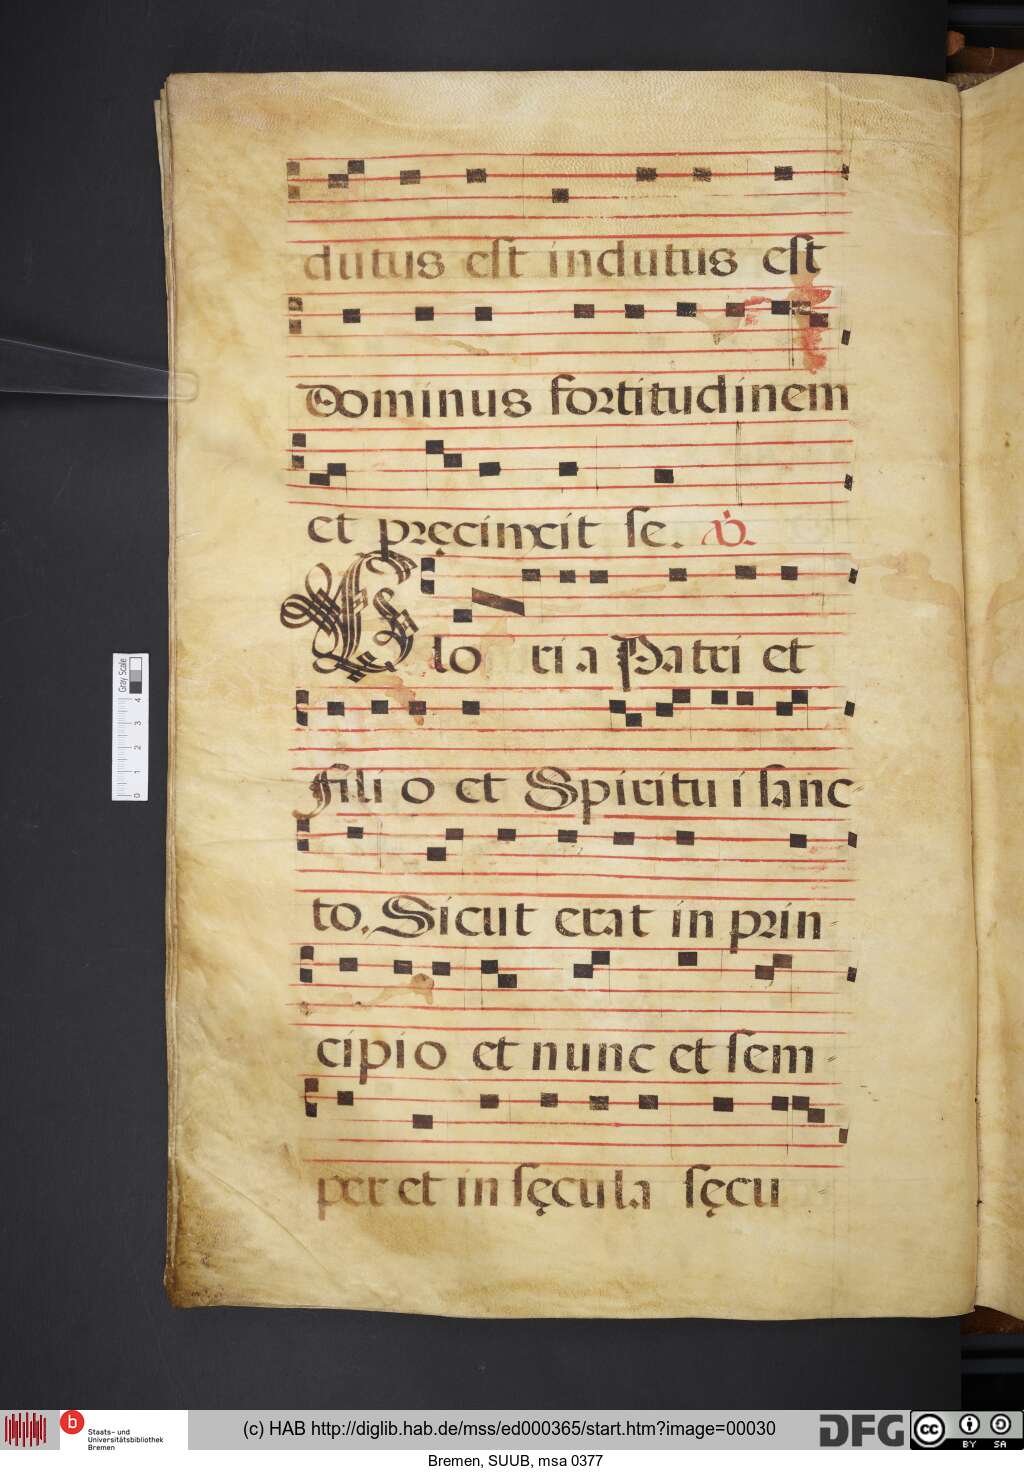 dutus est indutus est
Dominus fortitudinem
et pręcinxit se. ℣.
Glo ri a Patri et
Fili o et Spiritu i sanc-
to. Sicut erat in prin-
cipio et nunc et sem-
per et in sęcula sęcu-
Gray Scale
4
3
2
1
0
b
Staats- und
Universitätsbibliothek
Bremen
(c) HAB http://diglib.hab.de/mss/ed000365/start.htm?image=00030
DFG
cc
BY SA
Bremen, SUUB, msa 0377